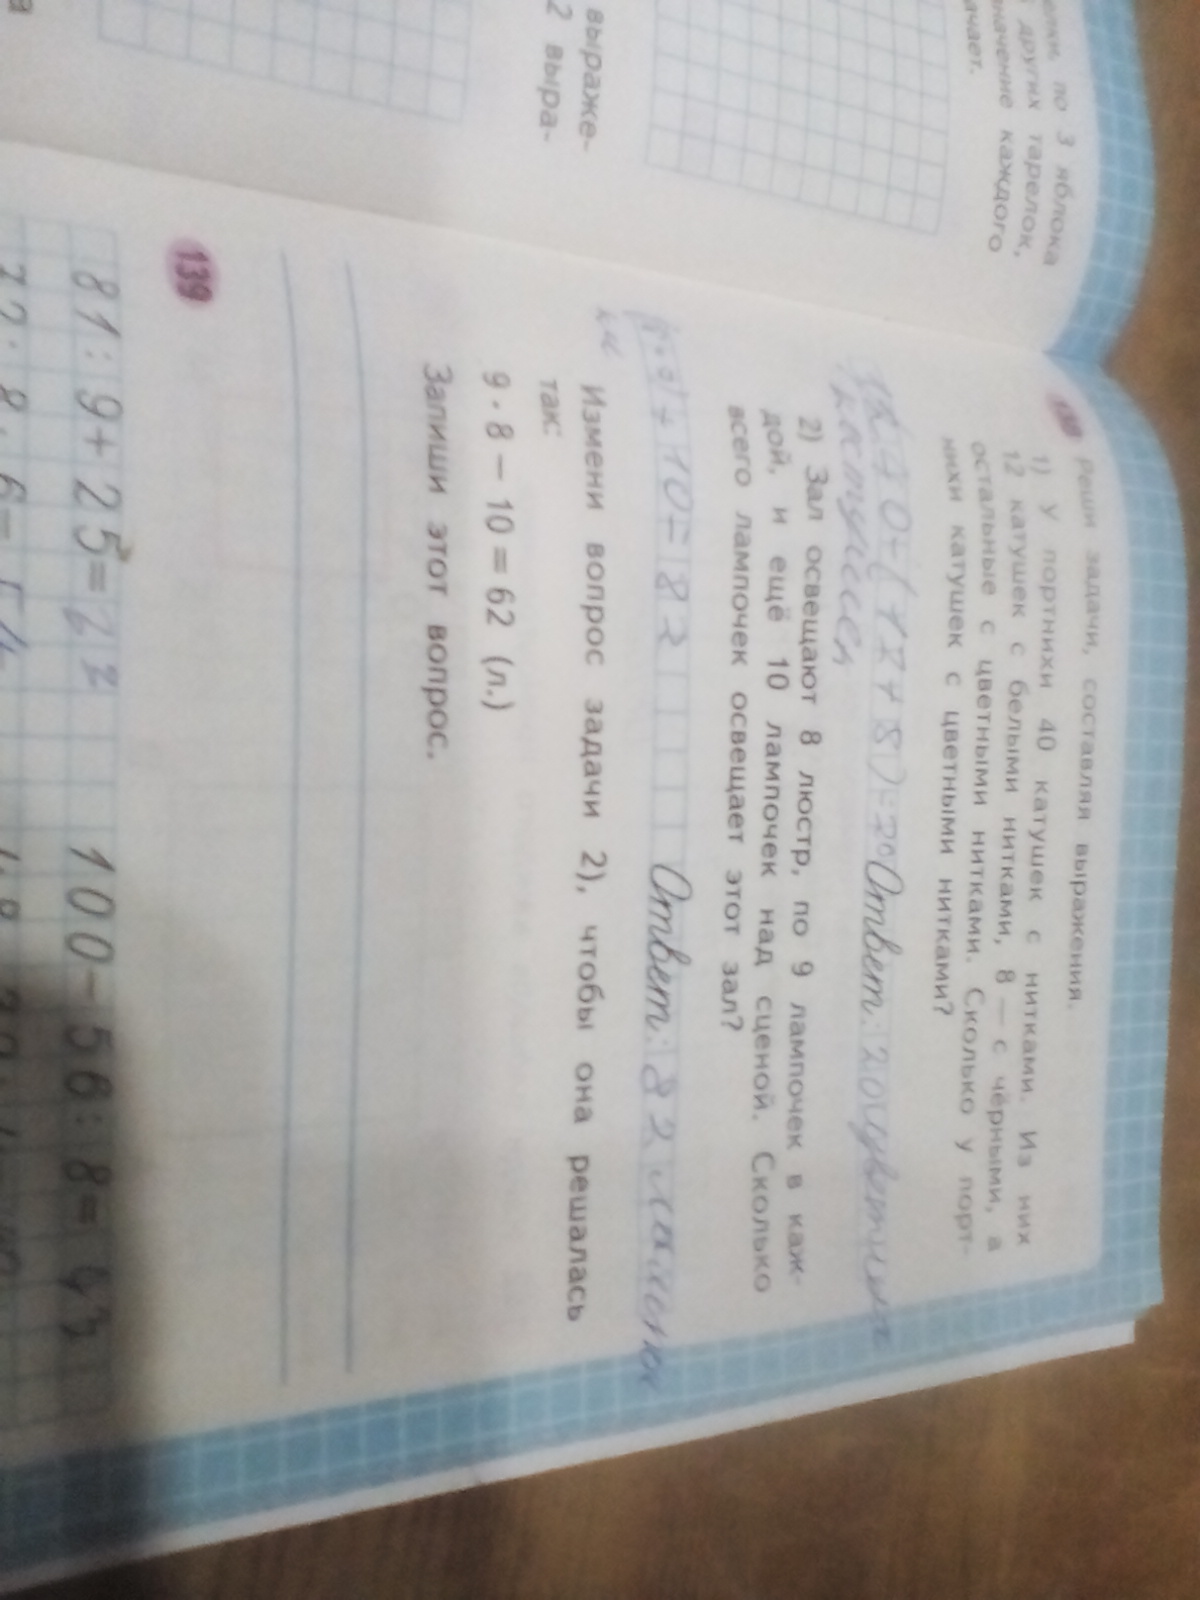 елки, по 3 яблока
других тарелок,
значение каждого
ачает.
выраже-
2 выра-
138 Реши задачи, составляя выражения.
1) У портнихи 40 катушек с нитками. Из них
12 катушек с белыми нитками, 8 — с чёрными, а
остальные с цветными нитками. Сколько у порт-
нихи катушек с цветными нитками?
40-(12+8)=20 Ответ: 20 цветных
катушек
2) Зал освещают 8 люстр, по 9 лампочек в каж-
дой, и ещё 10 лампочек над сценой. Сколько
всего лампочек освещает этот зал?
+10=82 Ответ: 82
Измени вопрос задачи 2), чтобы она решалась
так:
9 · 8 − 10 = 62 (л.)
Запиши этот вопрос.
139
81:9+25=
100-56:8=